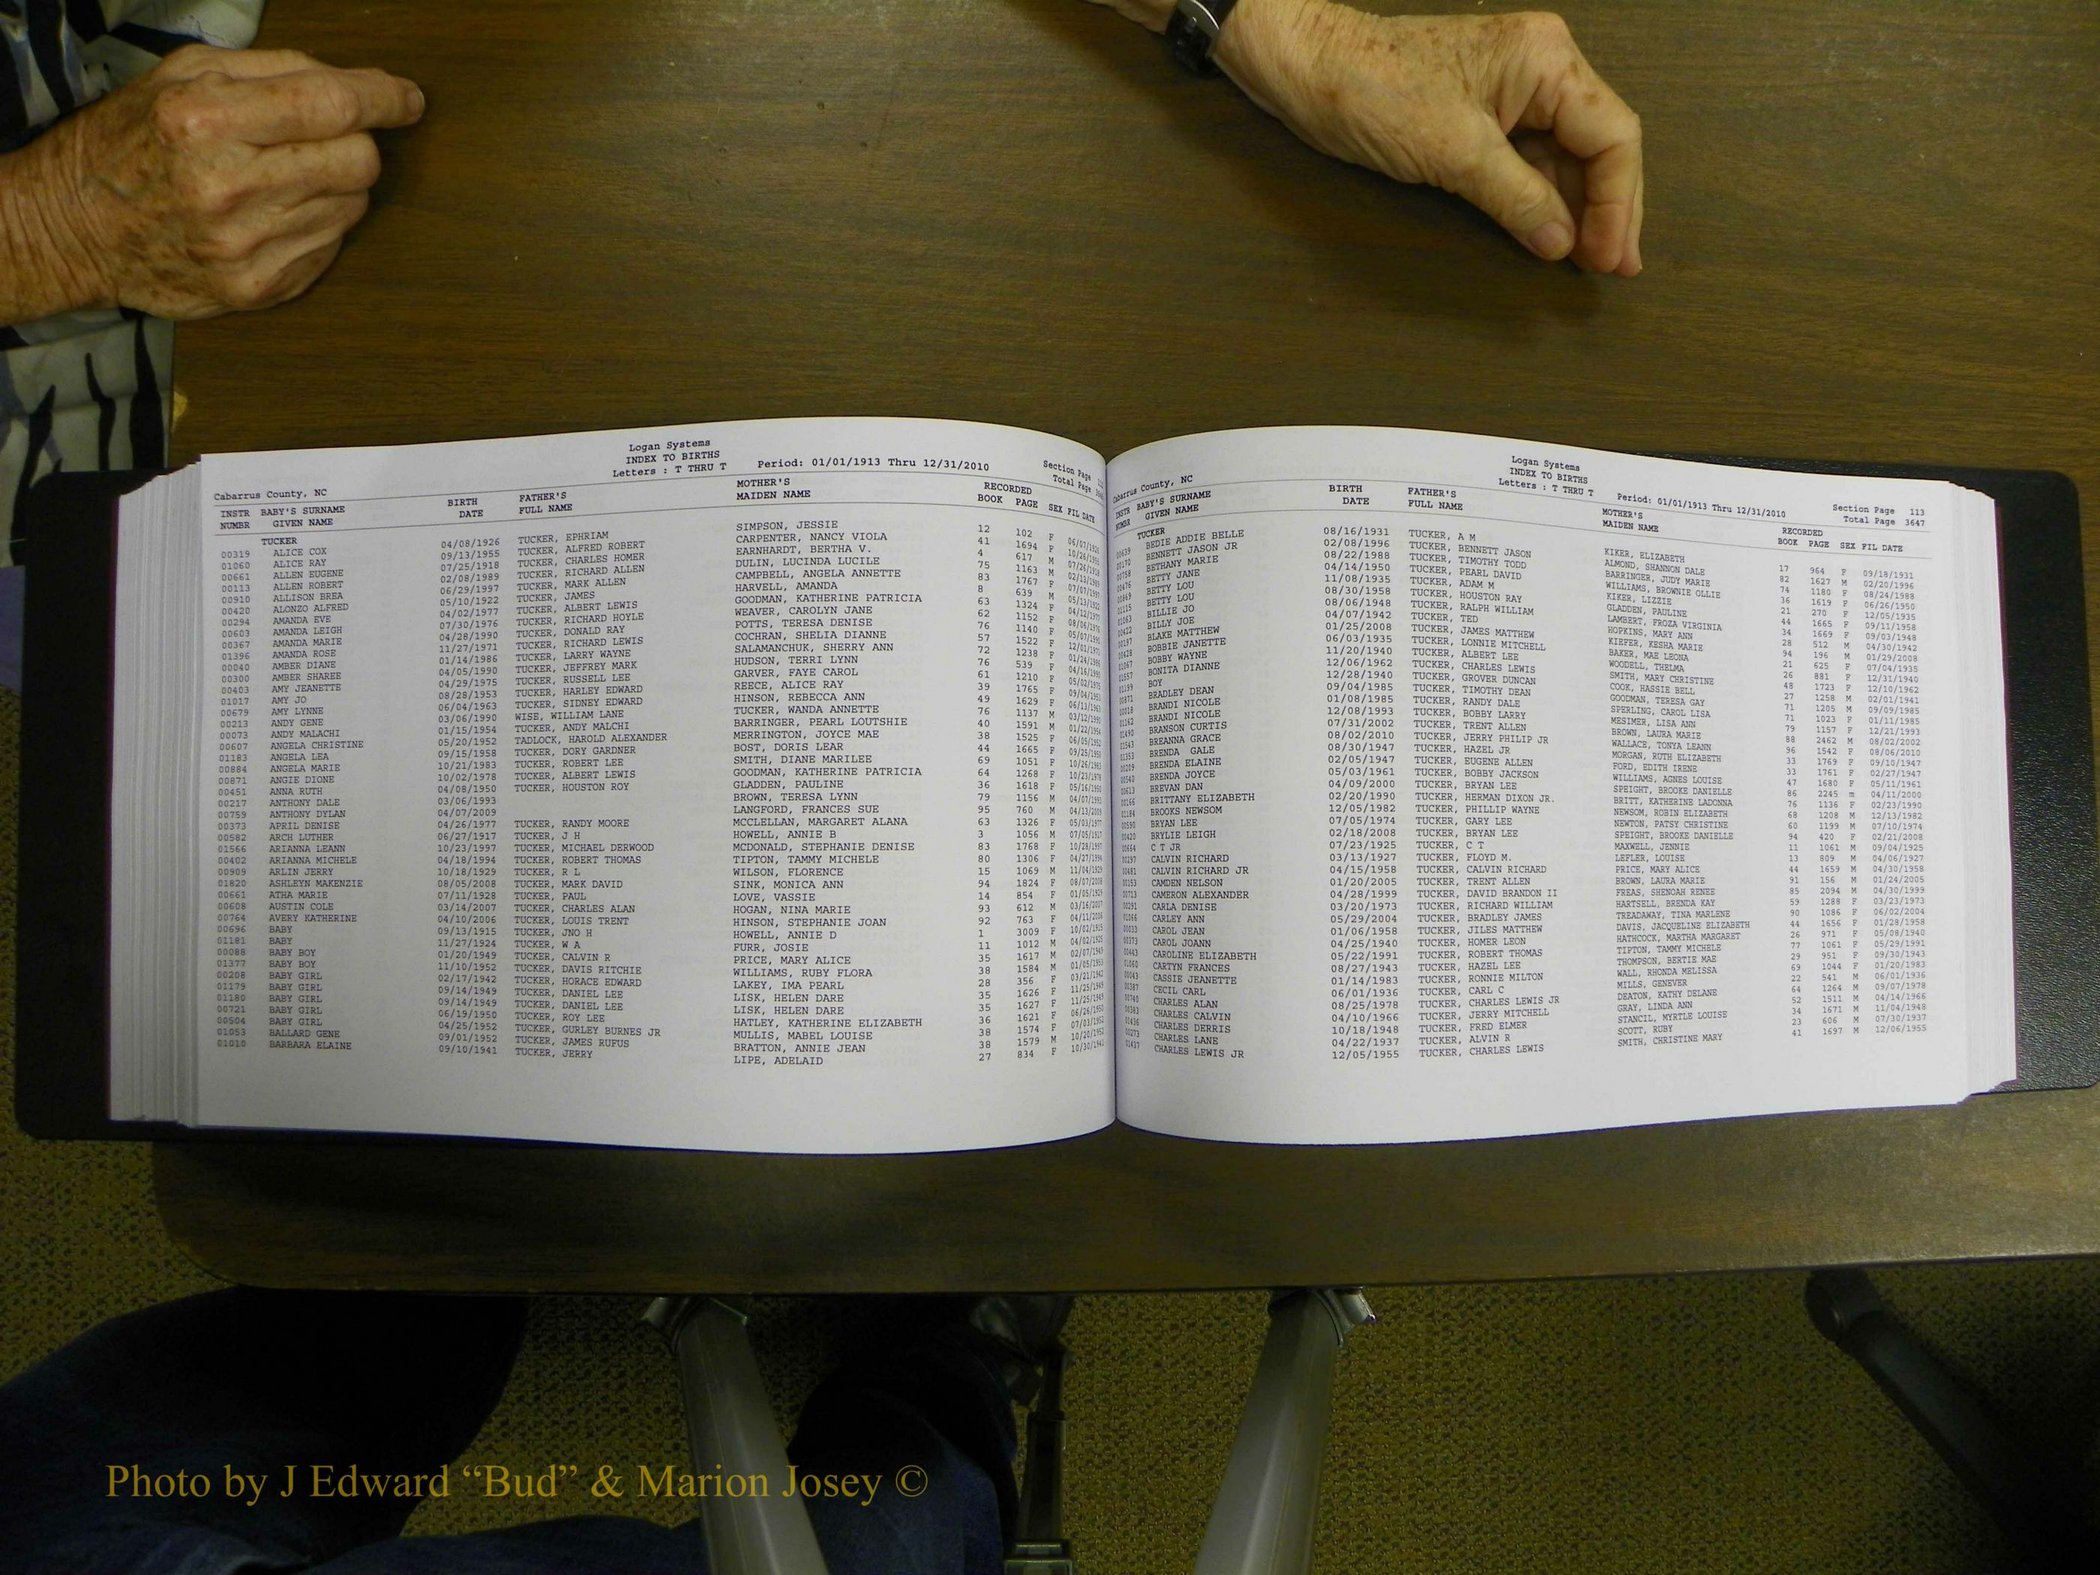 Logan Systems
INDEX TO BIRTHS
Letters : T THRU T Period: 01/01/1913 Thru 12/31/2010 Section Page
Cabarrus County, NC Total Page
INSTR BABY'S SURNAME BIRTH FATHER'S MOTHER'S RECORDED
NUMBR GIVEN NAME DATE FULL NAME MAIDEN NAME BOOK PAGE SEX FIL DATE
TUCKER
00319 ALICE COX 04/08/1926 TUCKER, EPHRIAM SIMPSON, JESSIE 12 102 F
01060 ALICE RAY 09/13/1955 TUCKER, ALFRED ROBERT CARPENTER, NANCY VIOLA 41 1694 F
00661 ALLEN EUGENE 07/25/1918 TUCKER, CHARLES HOMER EARNHARDT, BERTHA V. 4 617 M
00113 ALLEN ROBERT 02/08/1989 TUCKER, RICHARD ALLEN DULIN, LUCINDA LUCILE 75 1163 M
00910 ALLISON BREA 06/29/1997 TUCKER, MARK ALLEN CAMPBELL, ANGELA ANNETTE 83 1767 F
00420 ALONZO ALFRED 05/10/1922 TUCKER, JAMES HARVELL, AMANDA 8 639 M
00294 AMANDA EVE 04/02/1977 TUCKER, ALBERT LEWIS GOODMAN, KATHERINE PATRICIA 63 1324 F
00603 AMANDA LEIGH 07/30/1976 TUCKER, RICHARD HOYLE WEAVER, CAROLYN JANE 62 1152 F
00367 AMANDA MARIE 04/28/1990 TUCKER, DONALD RAY POTTS, TERESA DENISE 76 1140 F
01396 AMANDA ROSE 11/27/1971 TUCKER, RICHARD LEWIS COCHRAN, SHELIA DIANNE 57 1522 F
00040 AMBER DIANE 01/14/1986 TUCKER, LARRY WAYNE SALAMANCHUK, SHERRY ANN 72 1238 F
00300 AMBER SHAREE 04/05/1990 TUCKER, JEFFREY MARK HUDSON, TERRI LYNN 76 539 F
00403 AMY JEANETTE 04/29/1975 TUCKER, RUSSELL LEE GARVER, FAYE CAROL 61 1210 F
01017 AMY JO 08/28/1953 TUCKER, HARLEY EDWARD REECE, ALICE RAY 39 1765 F
00679 AMY LYNNE 06/04/1963 TUCKER, SIDNEY EDWARD HINSON, REBECCA ANN 49 1629 F
00213 ANDY GENE 03/06/1990 WISE, WILLIAM LANE TUCKER, WANDA ANNETTE 76 1137 M
00073 ANDY MALACHI 01/15/1954 TUCKER, ANDY MALCHI BARRINGER, PEARL LOUTSHIE 40 1591 M
00607 ANGELA CHRISTINE 05/20/1952 TADLOCK, HAROLD ALEXANDER MERRINGTON, JOYCE MAE 38 1525 F
01183 ANGELA LEA 09/15/1958 TUCKER, DORY GARDNER BOST, DORIS LEAR 44 1665 F
00884 ANGELA MARIE 10/21/1983 TUCKER, ROBERT LEE SMITH, DIANE MARILEE 69 1051 F
00871 ANGIE DIONE 10/02/1978 TUCKER, ALBERT LEWIS GOODMAN, KATHERINE PATRICIA 64 1268 F
00451 ANNA RUTH 04/08/1950 TUCKER, HOUSTON ROY GLADDEN, PAULINE 36 1618 F
00217 ANTHONY DALE 03/06/1993 BROWN, TERESA LYNN 79 1156 M
00759 ANTHONY DYLAN 04/07/2009 LANGFORD, FRANCES SUE 95 760 M
00373 APRIL DENISE 04/26/1977 TUCKER, RANDY MOORE MCCLELLAN, MARGARET ALANA 63 1326 F
00582 ARCH LUTHER 06/27/1917 TUCKER, J H HOWELL, ANNIE B 3 1056 M
01566 ARIANNA LEANN 10/23/1997 TUCKER, MICHAEL DERWOOD MCDONALD, STEPHANIE DENISE 83 1768 F
00402 ARIANNA MICHELE 04/18/1994 TUCKER, ROBERT THOMAS TIPTON, TAMMY MICHELE 80 1306 F
00909 ARLIN JERRY 10/18/1929 TUCKER, R L WILSON, FLORENCE 15 1069 M
01820 ASHLEYN MAKENZIE 08/05/2008 TUCKER, MARK DAVID SINK, MONICA ANN 94 1824 F
00661 ATHA MARIE 07/11/1928 TUCKER, PAUL LOVE, VASSIE 14 854 F
00608 AUSTIN COLE 03/14/2007 TUCKER, CHARLES ALAN HOGAN, NINA MARIE 93 612 M
00764 AVERY KATHERINE 04/10/2006 TUCKER, LOUIS TRENT HINSON, STEPHANIE JOAN 92 763 F
00696 BABY 09/13/1915 TUCKER, JNO H HOWELL, ANNIE D 1 3009 F
01181 BABY 11/27/1924 TUCKER, W A FURR, JOSIE 11 1012 M
00088 BABY BOY 01/20/1949 TUCKER, CALVIN R PRICE, MARY ALICE 35 1617 M
01377 BABY BOY 11/10/1952 TUCKER, DAVIS RITCHIE WILLIAMS, RUBY FLORA 38 1584 M
00208 BABY GIRL 02/17/1942 TUCKER, HORACE EDWARD LAKEY, IMA PEARL 28 356 F
01179 BABY GIRL 09/14/1949 TUCKER, DANIEL LEE LISK, HELEN DARE 35 1626 F
01180 BABY GIRL 09/14/1949 TUCKER, DANIEL LEE LISK, HELEN DARE 35 1627 F
00721 BABY GIRL 06/19/1950 TUCKER, ROY LEE HATLEY, KATHERINE ELIZABETH 36 1621 F
00504 BABY GIRL 04/25/1952 TUCKER, GURLEY BURNES JR MULLIS, MABEL LOUISE 38 1574 F
01053 BALLARD GENE 09/01/1952 TUCKER, JAMES RUFUS BRATTON, ANNIE JEAN 38 1579 M
01010 BARBARA ELAINE 09/10/1941 TUCKER, JERRY LIPE, ADELAID 27 834 F
Logan Systems
INDEX TO BIRTHS
Letters : T THRU T Period: 01/01/1913 Thru 12/31/2010 Section Page 113
Cabarrus County, NC Total Page 3647
INSTR BABY'S SURNAME BIRTH FATHER'S MOTHER'S RECORDED
NUMBR GIVEN NAME DATE FULL NAME MAIDEN NAME BOOK PAGE SEX FIL DATE
TUCKER
BEDIE ADDIE BELLE 08/16/1931 TUCKER, A M KIKER, ELIZABETH 17 964 F 09/18/1931
BENNETT JASON JR 02/08/1996 TUCKER, BENNETT JASON ALMOND, SHANNON DALE 82 1627 M 02/20/1996
BETHANY MARIE 08/22/1988 TUCKER, TIMOTHY TODD BARRINGER, JUDY MARIE 74 1180 F 08/24/1988
BETTY JANE 04/14/1950 TUCKER, PEARL DAVID WILLIAMS, BROWNIE OLLIE 36 1619 F 06/26/1950
BETTY LOU 11/08/1935 TUCKER, ADAM M KIKER, LIZZIE 21 270 F 12/05/1935
BETTY LOU 08/30/1958 TUCKER, HOUSTON RAY GLADDEN, PAULINE 44 1665 F 09/11/1958
BILLIE JO 08/06/1948 TUCKER, RALPH WILLIAM LAMBERT, FROZA VIRGINIA 34 1669 F 09/03/1948
BILLY JOE 04/07/1942 TUCKER, TED HOPKINS, MARY ANN 28 512 M 04/30/1942
BLAKE MATTHEW 01/25/2008 TUCKER, JAMES MATTHEW KIEFER, KESHA MARIE 94 196 M 01/29/2008
BOBBIE JANETTE 06/03/1935 TUCKER, LONNIE MITCHELL BAKER, MAE LEONA 21 625 F 07/04/1935
BOBBY WAYNE 11/20/1940 TUCKER, ALBERT LEE WOODELL, THELMA 26 881 12/31/1940
BONITA DIANNE 12/06/1962 TUCKER, CHARLES LEWIS SMITH, MARY CHRISTINE 48 1723 F 12/10/1962
BOY 12/28/1940 TUCKER, GROVER DUNCAN COOK, HASSIE BELL 27 1258 M 02/01/1941
BRADLEY DEAN 09/04/1985 TUCKER, TIMOTHY DEAN GOODMAN, TERESA GAY 71 1205 M 09/09/1985
BRANDI NICOLE 01/08/1985 TUCKER, RANDY DALE SPERLING, CAROL LISA 71 1023 F 01/11/1985
BRANDI NICOLE 12/08/1993 TUCKER, BOBBY LARRY MESIMER, LISA ANN 79 1157 F 12/21/1993
BRANSON CURTIS 07/31/2002 TUCKER, TRENT ALLEN BROWN, LAURA MARIE 88 2462 M 08/02/2002
BREANNA GRACE 08/02/2010 TUCKER, JERRY PHILIP JR WALLACE, TONYA LEANN 96 1542 F 08/06/2010
BRENDA GALE 08/30/1947 TUCKER, HAZEL JR MORGAN, RUTH ELIZABETH 33 1769 F 09/10/1947
BRENDA ELAINE 02/05/1947 TUCKER, EUGENE ALLEN FORD, EDITH IRENE 33 1761 F 02/27/1947
BRENDA JOYCE 05/03/1961 TUCKER, BOBBY JACKSON WILLIAMS, AGNES LOUISE 47 1680 F 05/11/1961
BREVAN DAN 04/09/2000 TUCKER, BRYAN LEE SPEIGHT, BROOKE DANIELLE 86 2245 m 04/11/2000
BRITTANY ELIZABETH 02/20/1990 TUCKER, HERMAN DIXON JR. BRITT, KATHERINE LADONNA 76 1136 F 02/23/1990
BROOKS NEWSOM 12/05/1982 TUCKER, PHILLIP WAYNE NEWSOM, ROBIN ELIZABETH 68 1208 M 12/13/1982
BRYAN LEE 07/05/1974 TUCKER, GARY LEE NEWTON, PATSY CHRISTINE 60 1199 M 07/10/1974
BRYLIE LEIGH 02/18/2008 TUCKER, BRYAN LEE SPEIGHT, BROOKE DANIELLE 94 420 F 02/21/2008
C T JR 07/23/1925 TUCKER, C T MAXWELL, JENNIE 11 1061 M 09/04/1925
CALVIN RICHARD 03/13/1927 TUCKER, FLOYD M. LEFLER, LOUISE 13 809 M 04/06/1927
CALVIN RICHARD JR 04/15/1958 TUCKER, CALVIN RICHARD PRICE, MARY ALICE 44 1659 M 04/30/1958
CAMDEN NELSON 01/20/2005 TUCKER, TRENT ALLEN BROWN, LAURA MARIE 91 156 M 01/24/2005
CAMERON ALEXANDER 04/28/1999 TUCKER, DAVID BRANDON II FREAS, SHENOAH RENEE 85 2094 M 04/30/1999
CARLA DENISE 03/20/1973 TUCKER, RICHARD WILLIAM HARTSELL, BRENDA KAY 59 1288 F 03/23/1973
CARLEY ANN 05/29/2004 TUCKER, BRADLEY JAMES TREADAWAY, TINA MARLENE 90 1086 F 06/02/2004
CAROL JEAN 01/06/1958 TUCKER, JILES MATTHEW DAVIS, JACQUELINE ELIZABETH 44 1656 F 01/28/1958
CAROL JOANN 04/25/1940 TUCKER, HOMER LEON HATHCOCK, MARTHA MARGARET 26 971 F 05/08/1940
CAROLINE ELIZABETH 05/22/1991 TUCKER, ROBERT THOMAS TIPTON, TAMMY MICHELE 77 1061 F 05/29/1991
CARTYN FRANCES 08/27/1943 TUCKER, HAZEL LEE THOMPSON, BERTIE MAE 29 951 F 09/30/1943
CASSIE JEANETTE 01/14/1983 TUCKER, RONNIE MILTON WALL, RHONDA MELISSA 69 1044 F 01/20/1983
CECIL CARL 06/01/1936 TUCKER, CARL C MILLS, GENEVER 22 541 M 06/01/1936
CHARLES ALAN 08/25/1978 TUCKER, CHARLES LEWIS JR DEATON, KATHY DELANE 64 1264 M 09/07/1978
CHARLES CALVIN 04/10/1966 TUCKER, JERRY MITCHELL GRAY, LINDA ANN 52 1511 M 04/14/1966
CHARLES DERRIS 10/18/1948 TUCKER, FRED ELMER STANCIL, MYRTLE LOUISE 34 1671 M 11/04/1948
CHARLES LANE 04/22/1937 TUCKER, ALVIN R SCOTT, RUBY 23 606 M 07/30/1937
CHARLES LEWIS JR 12/05/1955 TUCKER, CHARLES LEWIS SMITH, CHRISTINE MARY 41 1697 M 12/06/1955
Photo by J Edward “Bud” & Marion Josey ©